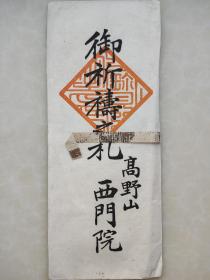 御祈禱之札
高野山
西門院